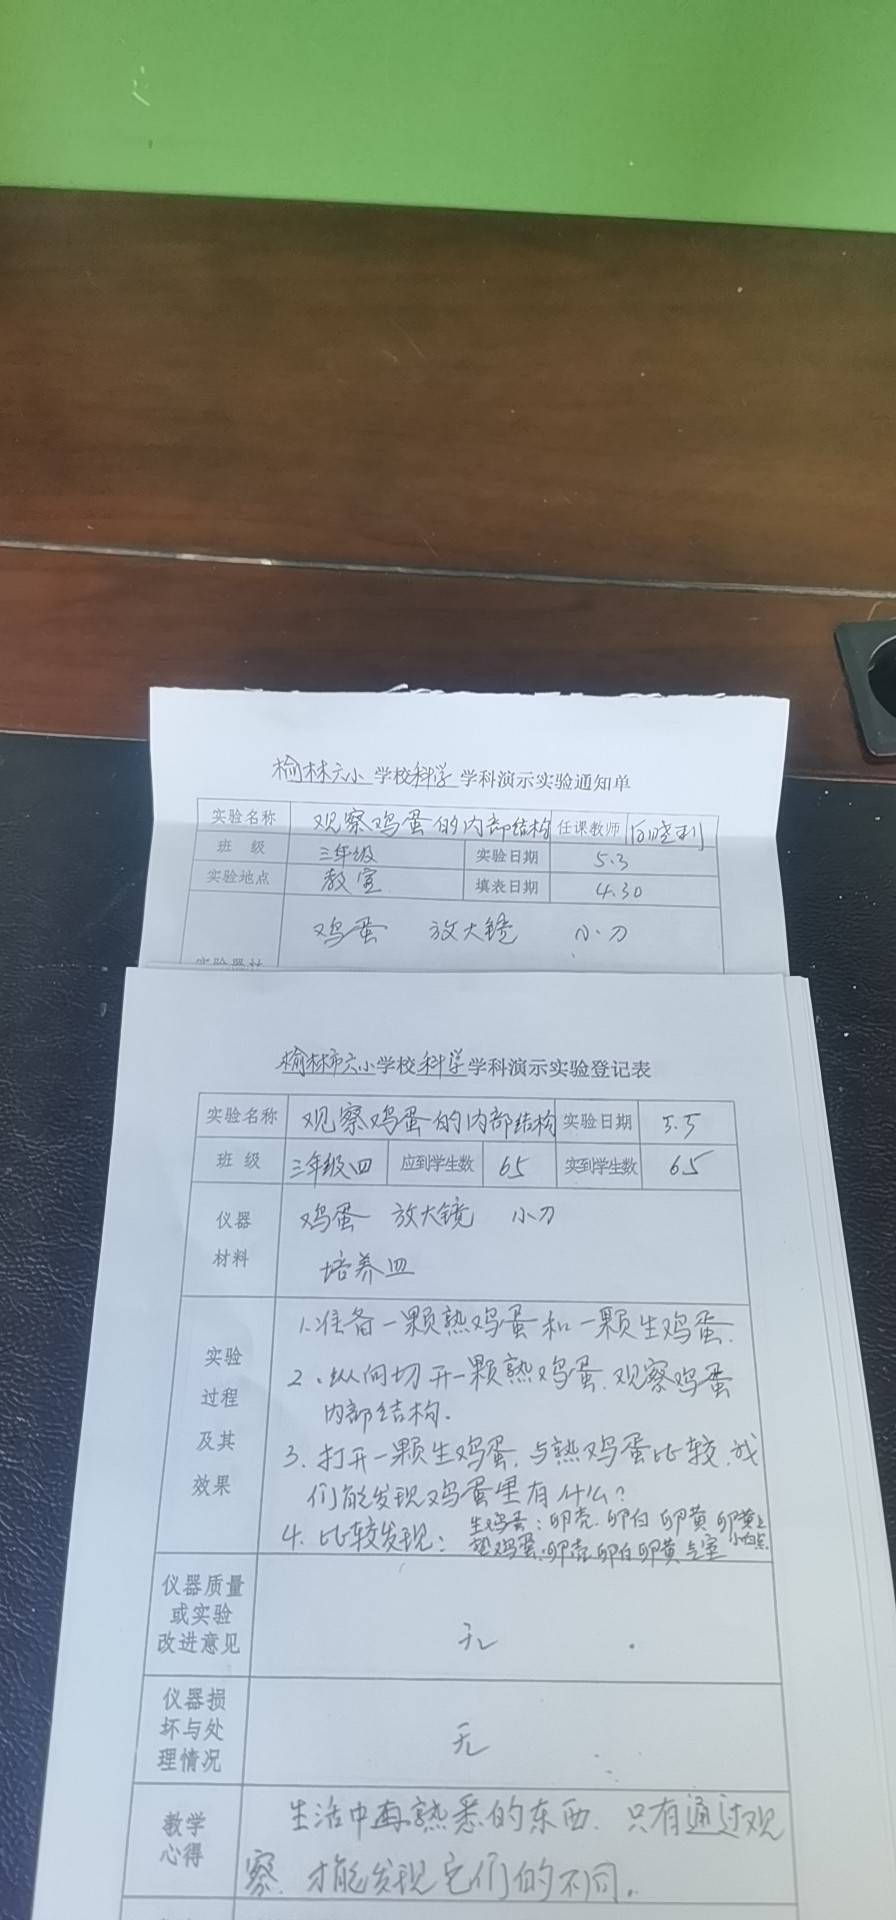 榆林六小 学校科学 学科演示实验通知单
实验名称 观察鸡蛋的内部结构 任课教师
班 级 三年级 实验日期 5.3
实验地点 教室 填表日期 4.30
鸡蛋 放大镜 小刀
实验器材
榆林市六小学校科学学科演示实验登记表
实验名称 观察鸡蛋的内部结构 实验日期 5.5
班 级 三年级四 应到学生数 65 实到学生数 65
仪器 鸡蛋 放大镜 小刀
材料 培养皿
1.准备一颗熟鸡蛋和一颗生鸡蛋.
实验
2、纵向切开一颗熟鸡蛋.观察鸡蛋
过程
内部结构.
及其
3.打开一颗生鸡蛋,与熟鸡蛋比较,我
效果
们能发现鸡蛋里有什么?
4.比较发现: 生鸡蛋:卵壳.卵白 卵黄 卵黄上
小白点
熟鸡蛋:卵壳 卵白 卵黄 气室
仪器质量
或实验
改进意见 无
仪器损
坏与处 无
理情况
教学 生活中再熟悉的东西.只有通过观
心得 察.才能发现它们的不同。